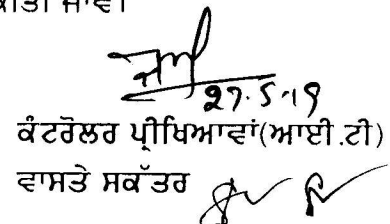 ਕੀਤੀ ਜਾਵੇ।
27.5.19
ਕੰਟਰੋਲਰ ਪ੍ਰੀਖਿਆਵਾਂ(ਆਈ.ਟੀ)
ਵਾਸਤੇ ਸਕੱਤਰ